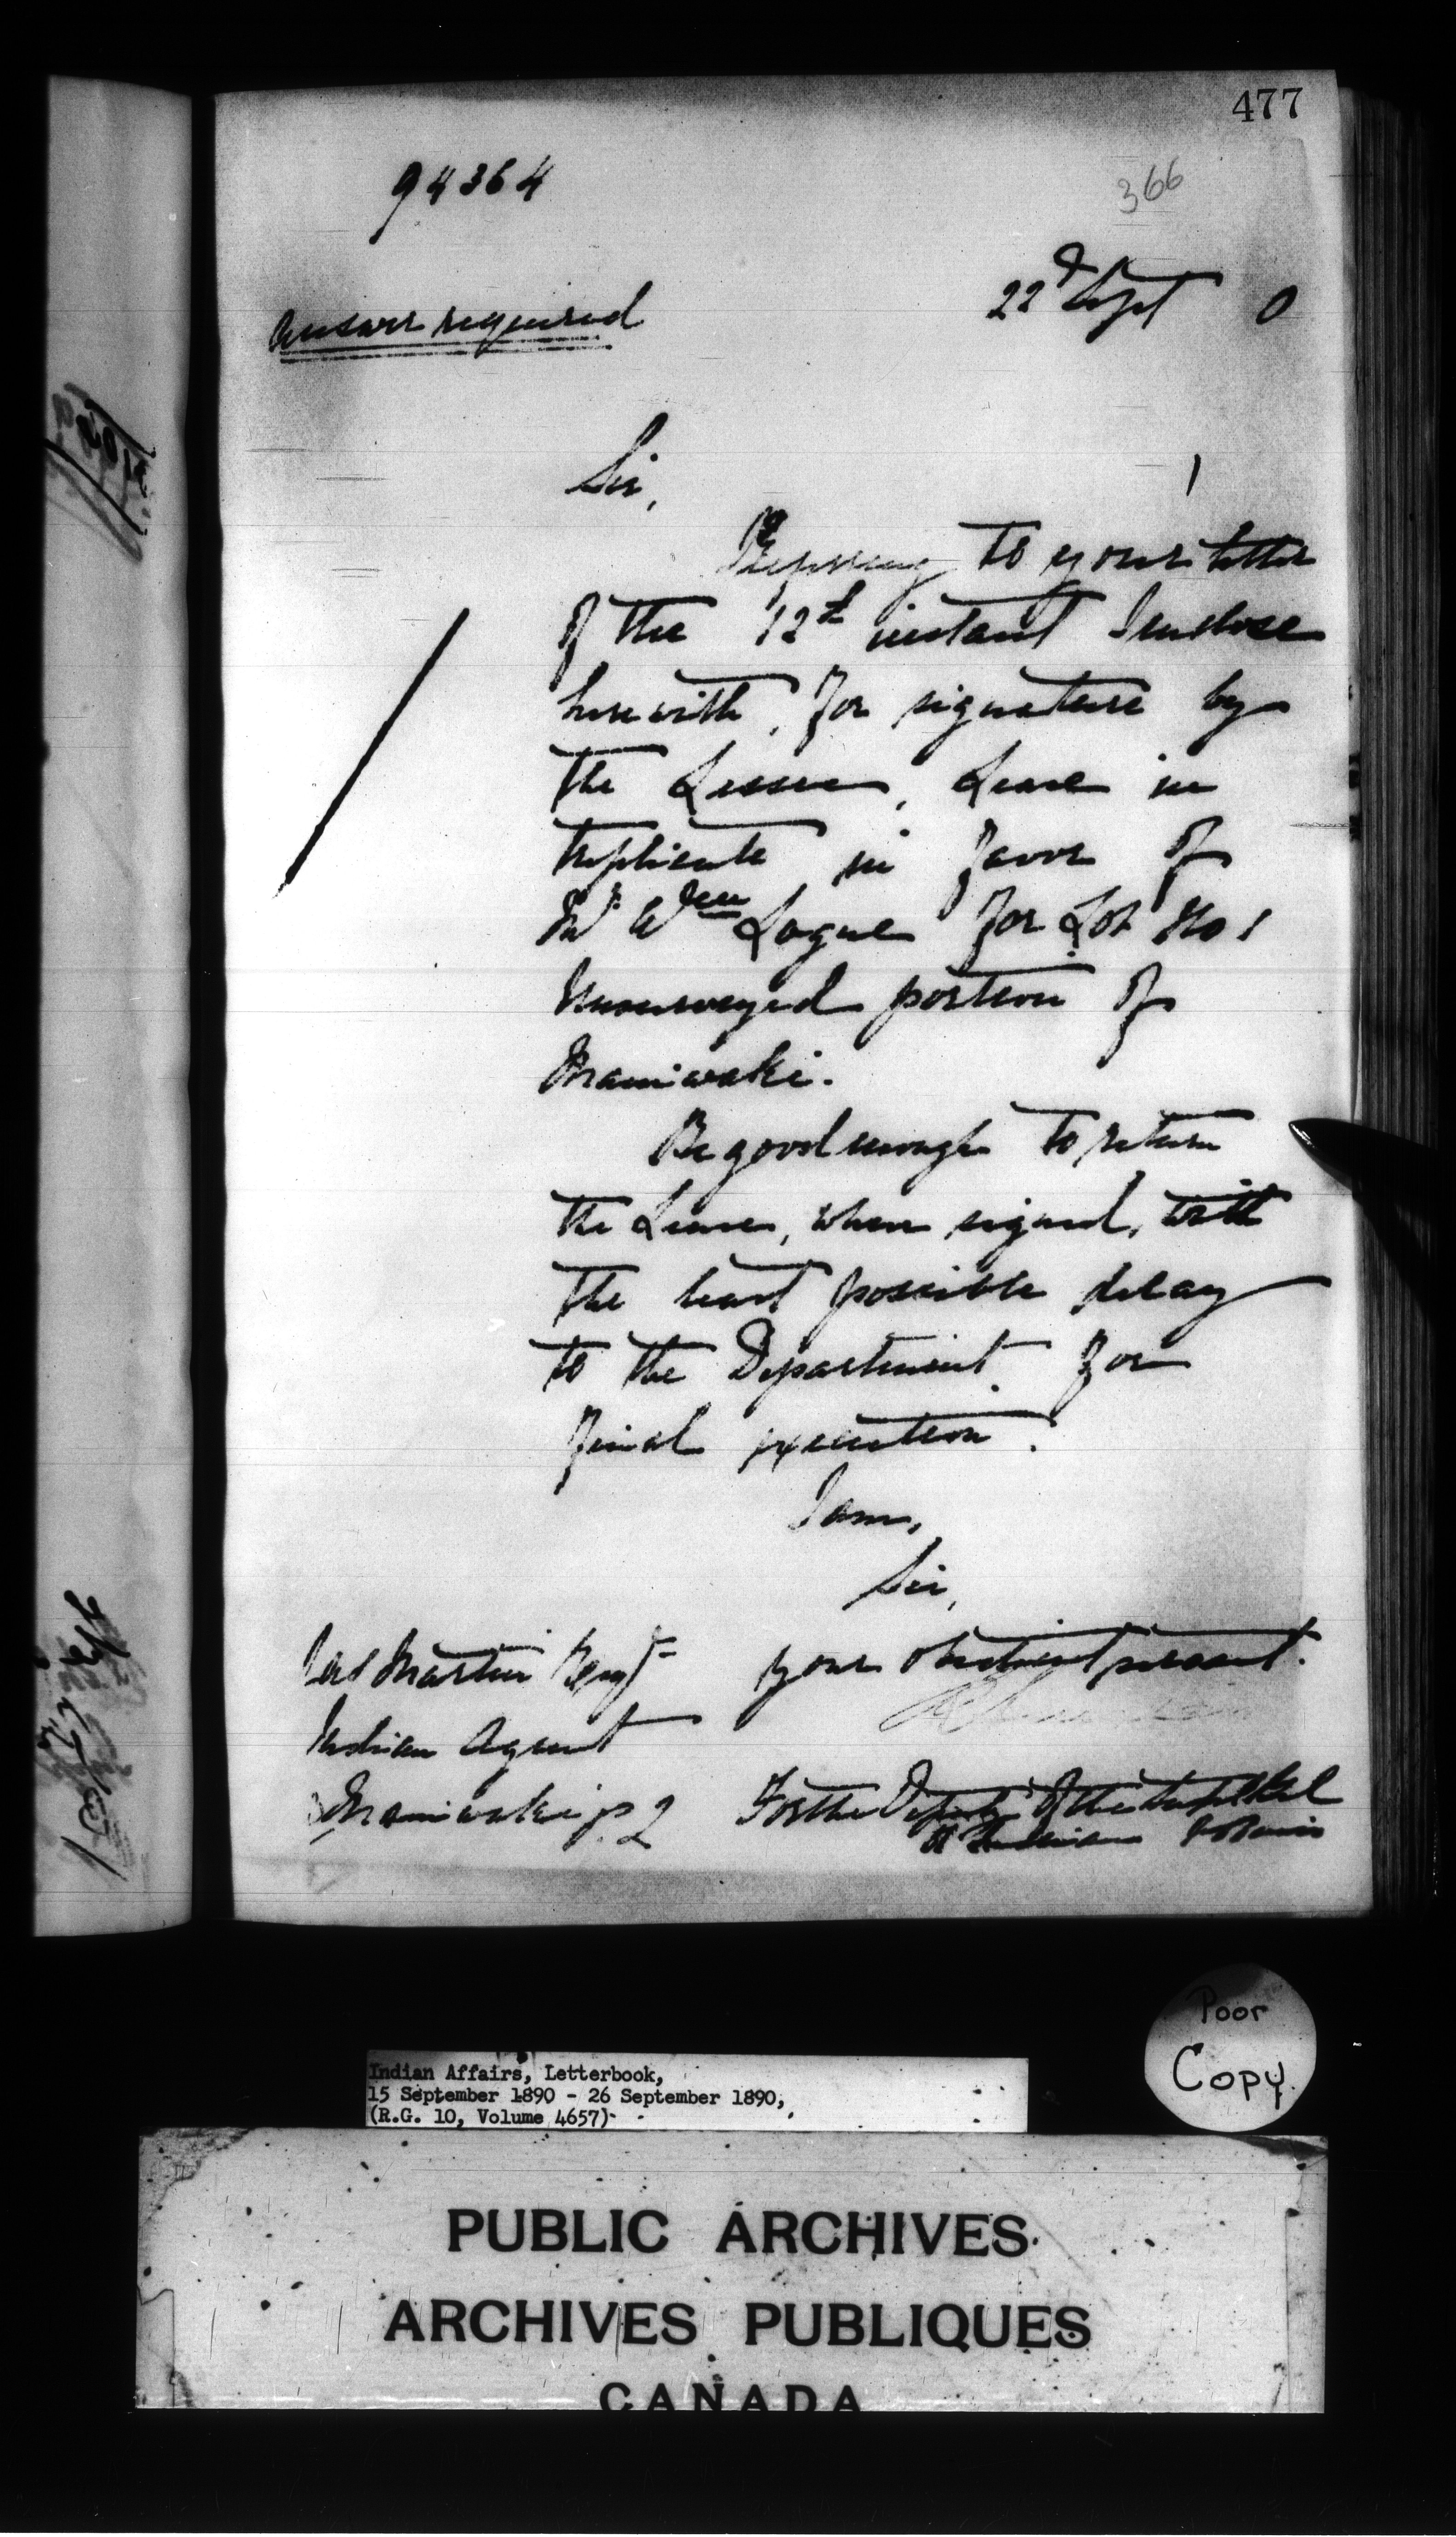 477
94364
366
22d Sept 0
Answer required
Sir,
Referring to your letter
of the 12th instant I enclose
herewith, for signature by
the Lessee, Lease in
triplicate in favor of
Mr Wm Logue for Lot No 1
Unsurveyed portion of
Maniwaki.
Be good enough to return
the Lease, when signed, with
the least possible delay
to the Department for
final execution.
I am,
Sir,
Your obedient servant.
Jas Martin Esqr
Indian Agent
Maniwaki P.Q
For the Deputy of the Supt Genl
of Indian Affairs
Poor
Copy.
Indian Affairs, Letterbook,
15 September 1890 - 26 September 1890,
(R.G. 10, Volume 4657)
PUBLIC ARCHIVES
ARCHIVES PUBLIQUES
CANADA